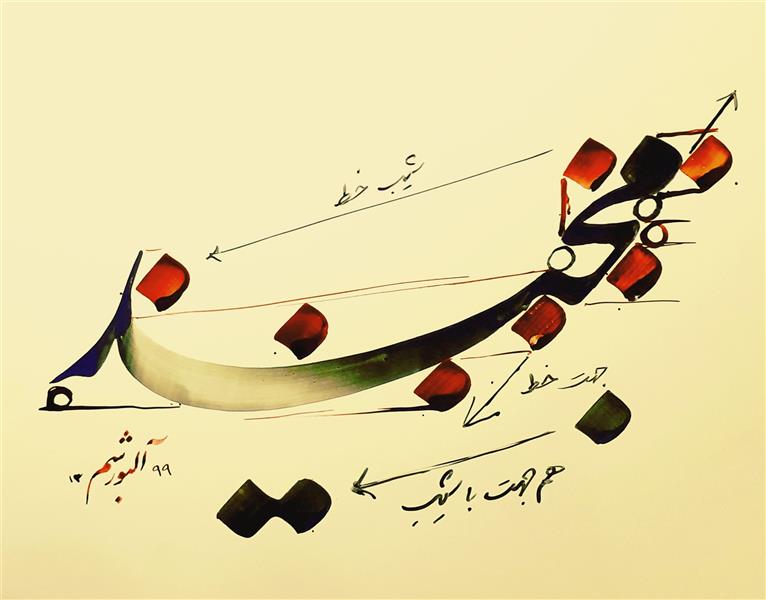 شیب خط
مجید
جهت خط
هم جهت با شیب
۱۳ ۹۹